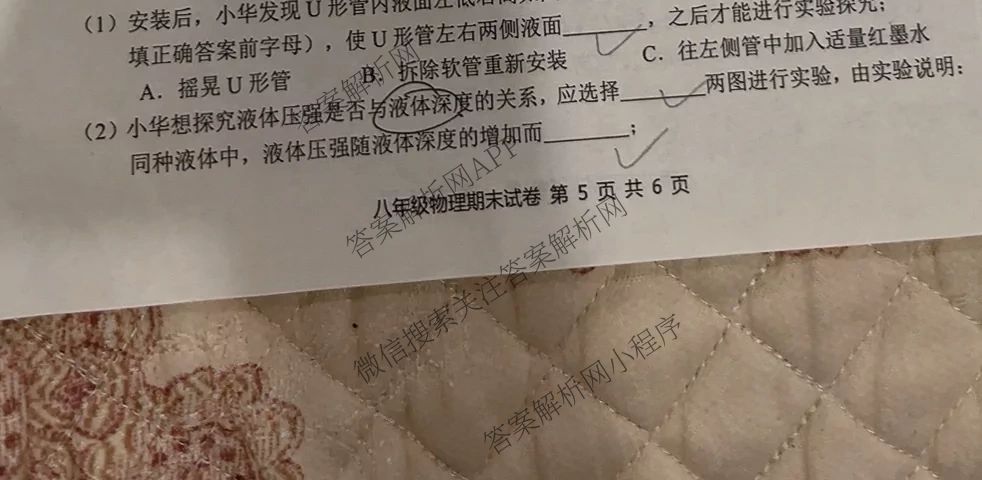 (1) 安装后，小华发现 U 形管内液面左低右高
填正确答案前字母），使 U 形管左右两侧液面______，之后才能进行实验探究；
A．摇晃 U 形管 B．拆除软管重新安装 C．往左侧管中加入适量红墨水
(2) 小华想探究液体压强是否与液体深度的关系，应选择______两图进行实验，由实验说明：
同种液体中，液体压强随液体深度的增加而______；
八年级物理期末试卷 第 5 页 共 6 页
答案解析网
答案解析网APP
微信搜索关注答案解析网
答案解析网小程序